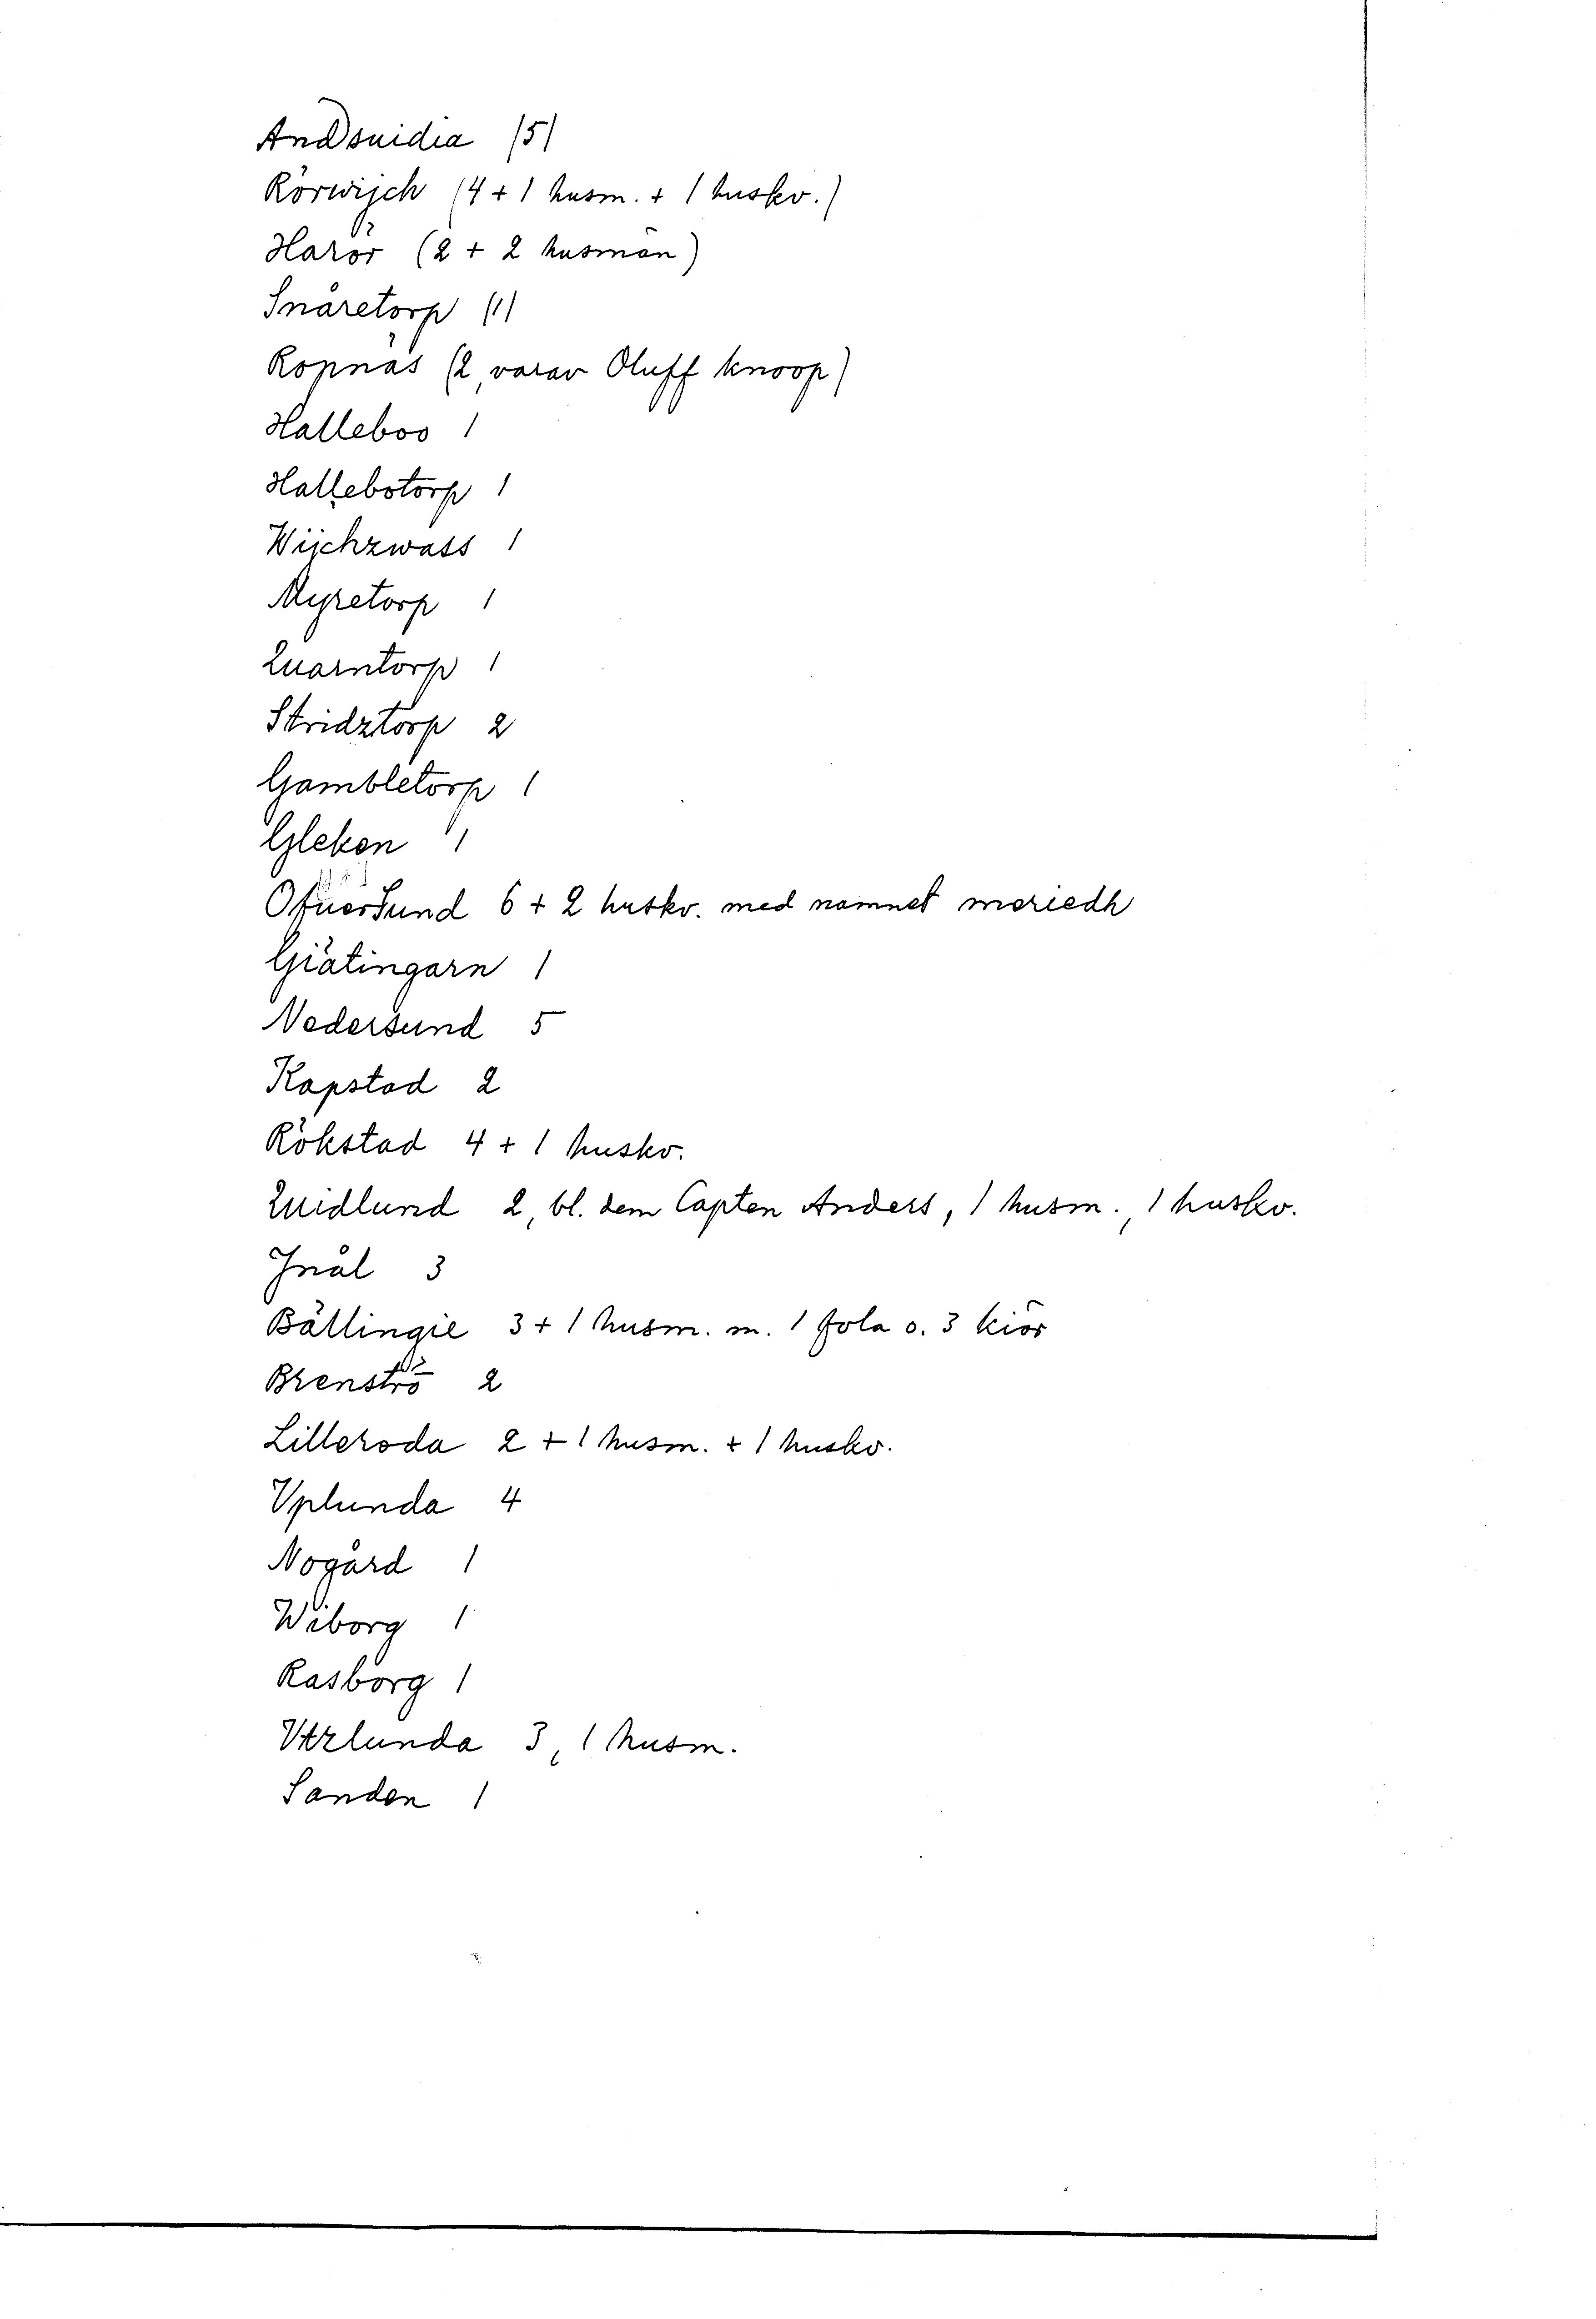 Andsuidia (5)
Rörwijch (4 + 1 husm. + 1 huskv.)
Harör (2 + 2 husmän)
Snåretorp (1)
Ropnäs (2, varav Oluff knoop)
Halleboo 1
Hallebotorp 1
Wijchzwass 1
Myretorp 1
Quarntorp 1
Stridztorp 2
Gambletorp 1
Gleken 1
Ofuersund 6 + 2 huskv. med namnet meriedh
Giätingarn 1
Nedersund 5
Kapstad 2
Rökstad 4 + 1 huskv.
Quidlund 2, bl. dem Capten Anders, 1 husm., 1 huskv.
Jnål 3
Bällingie 3 + 1 husm. m. 1 fola o. 3 kiör
Brenströ 2
Lilleroda 2 + 1 husm. + 1 huskv.
Vplunda 4
Nogård 1
Wiborg 1
Rasborg 1
Vtzlunda 3, 1 husm.
Sanden 1